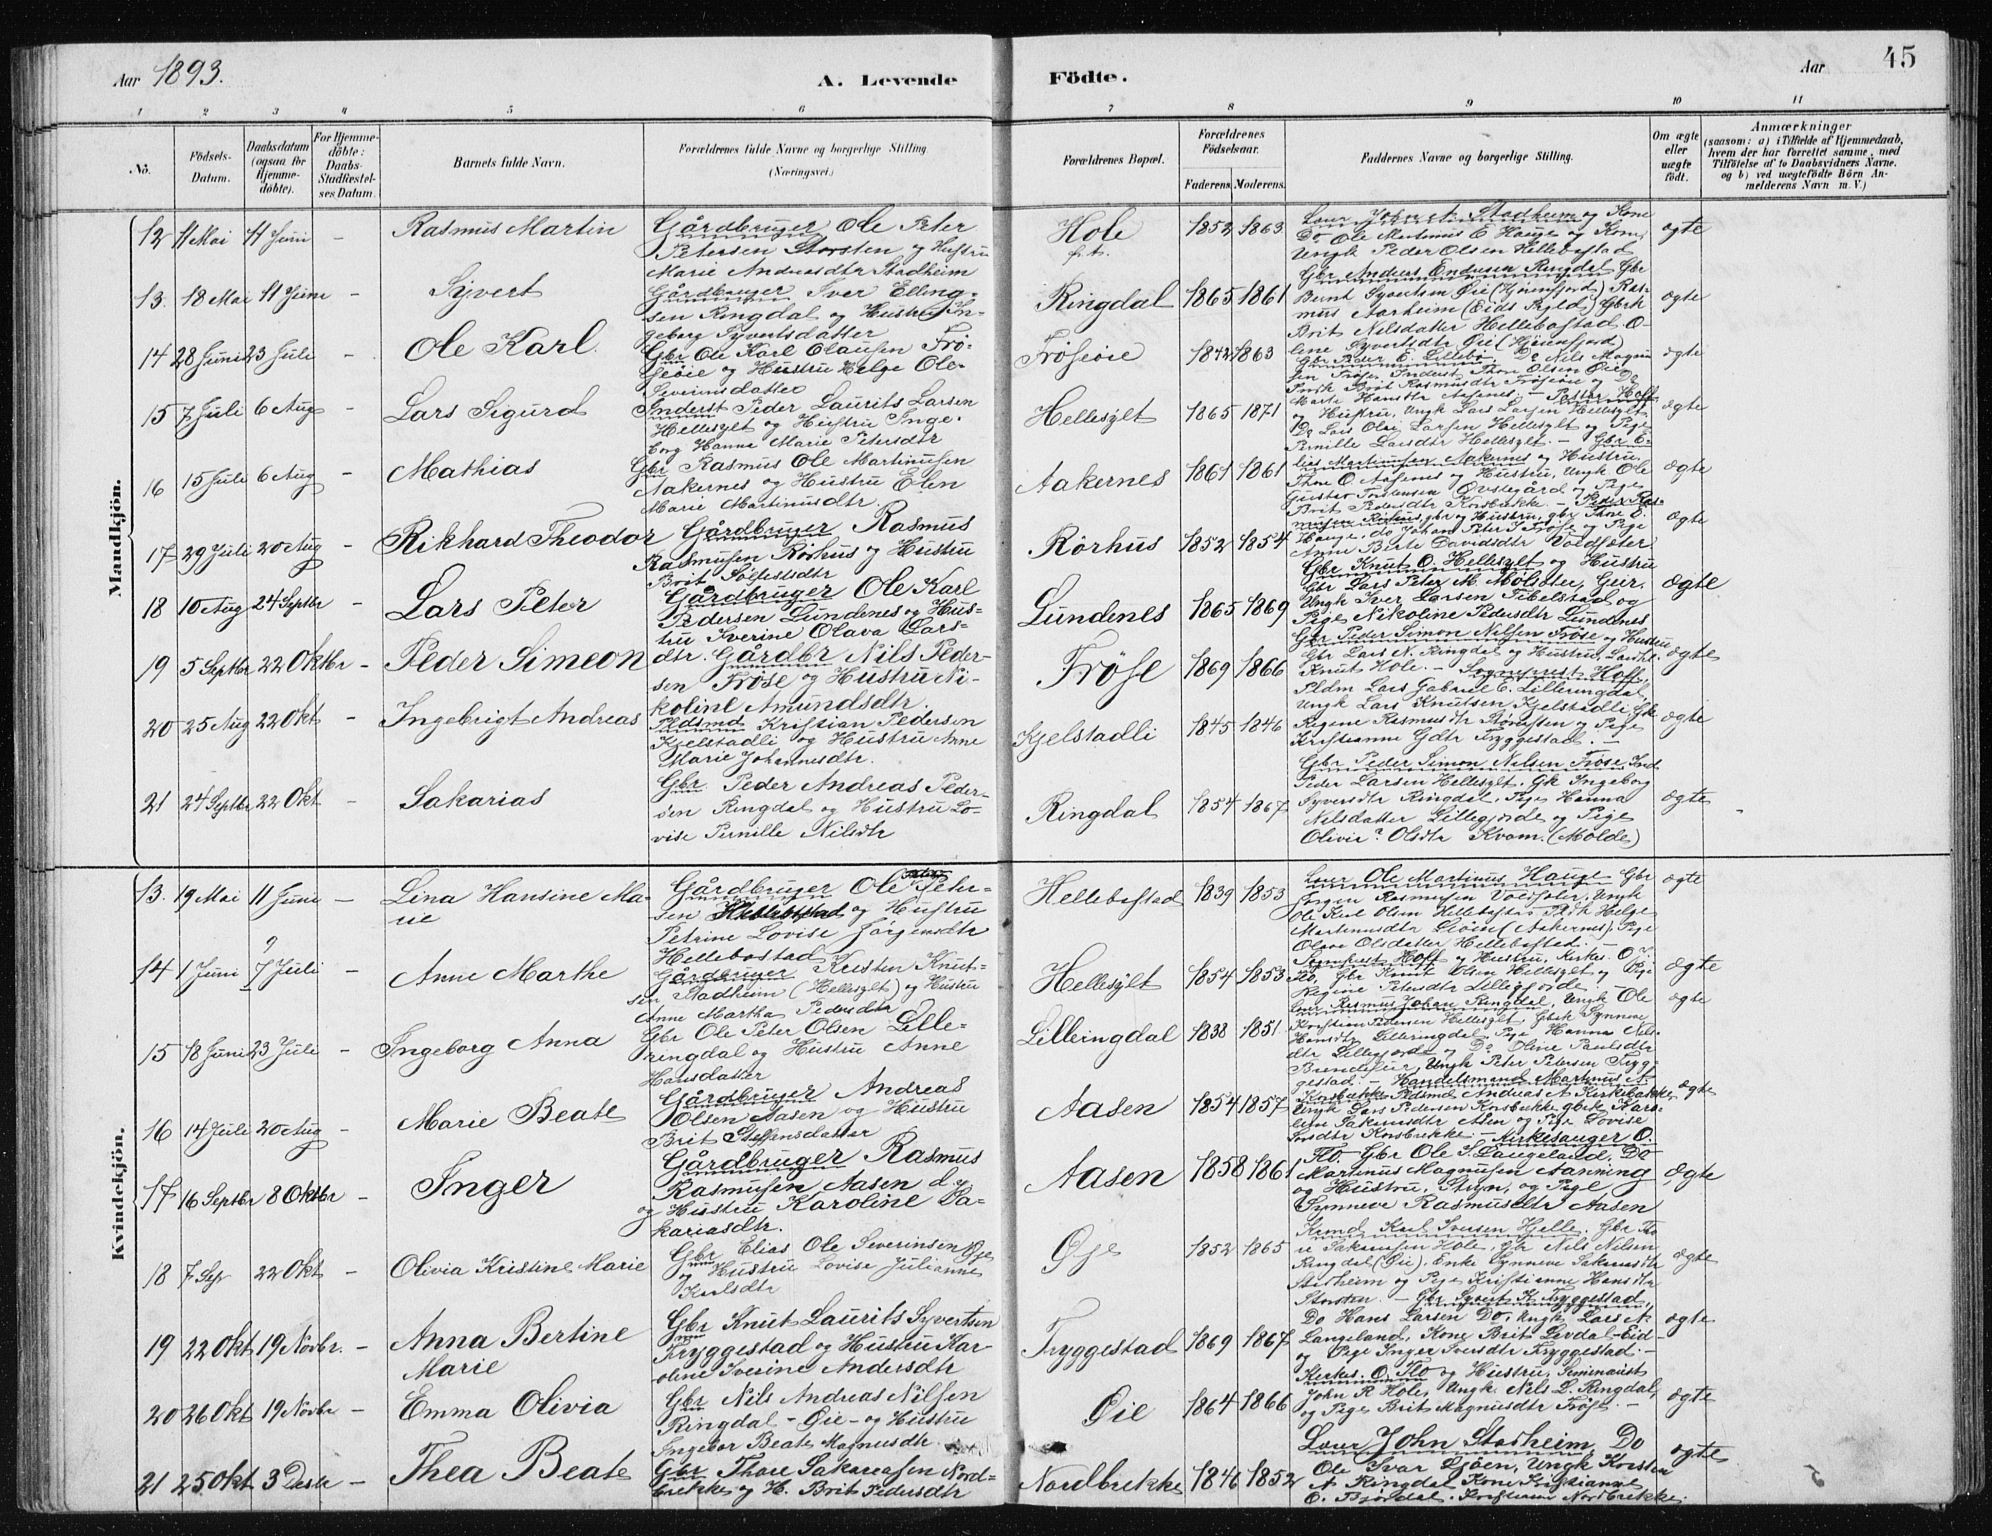 Aar 1893.
A. Levende
Födte.
Aar
45
1 2 3 4 5 6 7 8 9 10 11
No.
Födsels-
Datum.
Daabsdatum
(ogsaa for
Hjemme-
döbte).
For Hjemme-
döbte:
Daabs-
Stadfæstel-
ses Datum.
Barnets fulde Navn.
Forældrenes fulde Navne og borgerlige Stilling
(Næringsvei.)
Forældrenes Bopæl.
Forældrenes
Födselsaar.
Faderens. Moderens.
Faddernes Navne og borgerlige Stilling.
Om ægte
eller
uægte
födt.
Anmærkninger
(saasom: a) i Tilfælde af Hjemmedaab,
hvem der har forrettet samme, med
Tilföielse af to Daabsvidners Navne.
og b) ved uægtefödte Börn An-
melderens Navn m. V.)
Mandkjön.
12 11 Mai 11 Juni – Rasmus Martin
Gårdbruger Ole Peter
Petersen Storsten og Hustru
Marie Andreasdtr Stadheim
Hole 1852 1863
Do Ole Martinus E Hauge og Kone
Ungk Peder Olsen Hellebostad
ægte
13. 18 Mai 11 Juni – Syvert
Gårdbruger Iver Elling-
sen Ringdal og Hustru In-
geborg Syvertsdatter
Ringdal 1865 1861
Gbr Anders Endresen Ringdal Gbr
Bernt Syvertsen Øie (Hjörenfjord) Ras-
mus Aarheim (Eids Prgld) Gbrk
Brit Nilsdatter Hellebostad O-
line Syvertsdtr Øie (Hjörenfjord)
ægte
14 28 Juni 23 Juli – Ole Karl.
Gbr Ole Karl Olausen Frö-
seöie og Hustru Helge Ole-
Severinsdatter
Fröseöie 1842 1863
Gbr Peder E. Lillebö, Do Nils Magnu
sen Fröse, Inderst Thor Olsen Øie
Marte Hansdtr Aasenes. –
ægte
15 7 Juli 6 Aug – Lars Sigurd
Inderst Peder Laurits Larsen
Hellesylt og Hustru Inge-
borg Hanna Marie Petersdtr
Hellesylt 1865 1871
Pastor Hoff
og Hustru, Ungk Lars Larsen Hellesylt
Do Lars Olai Larsen Hellesylt og Pige
Pernille Larsdtr Hellesylt. –
ægte
16 15 Juli 6 Aug – Mathias
Gbr Rasmus Ole Martinusen
Aakernes og Hustru Elen
Marie Martinusdtr.
Aakernes 1861 1861
Gbr E-
lias Martinusen Aakernes og Hustru,
Thore O. Aasenes og Hustru, Ungk Ole
Gustav Torstensen Øvstegård og Pige
Brit Pedersdtr Korsbrekke. –
ægte
17 29 Juli 20 Aug – Rikhard Theodor
Gårdbruger Rasmus
Rasmusen Rörhus og Hustru
Brit Sölfestsdtr
Rörhus 1852 1854
Peder Ras-
musen Rörhus, gbr og Hustru, gbr Thore O.
Hauge, do Johan Peter I Fröse og Pige
Anne Berte Davidsdtr Voldsæter
ægte
18 10 Aug 24 Septbr – Lars Peter
Gårdbruger Ole Karl
Pedersen Lundenes og Hus-
tru Iverine Olava Lars-
dtr.
Lundenes 1865 1869
Gbr Knut O. Hellesylt og Hustru
Gbr Lars Peter M. Molsæter, Geir.
Ungk Iver Larsen Tibelstad og
Pige Nikoline Pedersdtr Lundenes
ægte
19 5 Septbr 22 Oktbr – Peder Simeon
Gårdbr Nils Peder-
sen Fröse og Hustru Ni-
koline Amundsdtr.
Fröse 1869 1866
Gbr Peder Simon Nilsen Fröse og Hustru
Gbr Lars N. Ringdal og Hustru,
Knut Hole. –
ægte
20 25 Aug 22 Okt – Ingebrigt Andreas
Pldsmd Kristian Pedersen
Kjelstadli og Hustru Anne
Marie Johannesdtr.
Kjelstadli 1845 1846
Sogneprest Hoff,
Pldm Lars Gabriel E. Lilleringdal,
Ungk Lars Knutsen Kjelstadli Gk
Regine Rasmusdtr Storsten og Pige
Kristianne Gdtr Tryggestad. –
ægte
21 24 Septbr 22 Okt – Sakarias
Gbr Peder Andreas Peder-
sen Ringdal og Hustru Lo-
vise Pernille Nilsdtr
Ringdal 1854 1867
Gbr Peder Simon Nilsen Fröse Ind
Peder Larsen Hellesylt. Gk Ingeborg
Syversdtr Ringdal, Pige Hanna
Nilsdatter Lillegjorde og Pige
Olivia Olsdtr Kvam. (Molde)
ægte
Kvindekjön.
13. 19 Mai 11 Juni – Lina Hansine Ma-
rie
Gårdbruger Ole Peter-
sen Hellebostad og Hustru
Petrine Lovise Jörgensdtr
Hellebostad
Hellebostad 1839 1853
Lærer Ole Martinus Hauge Gbr
Jörgen Rasmusen Voldsæter, Ungk
Ole Karl Olsen Hellebostad Pldk Helge
Martinusdtr Liöien (Aakernes) Pige
Olava Olsdatter Hellebostad. –
ægte
14 1 Juni 7 Juli – Anne Marthe
Gårdbruger Kristen Knut-
sen Stadheim (Hellesylt) og Hustru
Anne Martha Pedersdtr
Hellesylt 1854 1853
Sognprest Hoff og Hustru, Kirkes. O.
Flo, Gbr Knut Olsen Hellesylt og Pige
Regine Petersdtr Lillegjorde. –
ægte
15 18 Juni 23 Juli – Ingeborg Anna
Gbr Ole Peter Olsen Lille-
ringdal og Hustru Anne
Hansdatter
Lilleringdal 1838 1851
Rasmus Johan Ringdal, Ungk Ole
Kristian Pedersen Hellesylt, Gbrk Synneve
Hansdtr Lilleringdal, Pige Hanna Nils-
dtr Lillegjorde og Do Oline Paulsdtr
Ungk Peter Petersen Trygg-
gestad. –
ægte
16 14 Juli 20 Aug – Marie Beate
Gårdbruger Andreas
Olsen Aasen og Hustru
Brit Steffensdatter
Aasen 1854 1857
Handelsmand Martinus A
Korsbrekke Pldsmd Andreas A Kirkebakke,
Ungk Lars Pedersen Korsbrekke gbrk Kars-
line Sakariasdtr Aasen og Pige Lovise
Larsdtr Korsbrekke. –
ægte
17 16 Septbr 8 Oktbr – Inger
Gårdbruger Rasmus
Rasmusen Aasen d. y
og Hustru Karoline Sa-
kariasdtr.
Aasen 1858 1861
Kirkesanger O.
Flo. Gbr Ole S. Langeland, Do
Martinus Magnusen Aanning
og Hustru, Stryn, og Pige
Synneve Rasmusdtr Aasen
ægte
18 7 Sep 22 Okt – Olivia Kristine Marie
Gbr Elias Ole Severinsen Øje
og Hustru Lovise Julianne
Karlsdtr
Øje 1852 1865
Kmd Karl Iversen Hjelle. Gbr
Sakariasen Hole, Gbr Nils Nilsen
Ringdal (Øie), Enke Synneve Sakariasdtr
Storheim og Pige Kristianne Hansdtr
Storsten. –
ægte
19 22 Okt 19 Novbr. – Anna Bertine
Marie
Gbr Knut Laurits Syvertsen
Tryggestad og Hustru Kar-
oline Iverine Andersdtr
Tryggestad 1869 1867
Gbr Syvert K. Tryggestad,
Do Hans Larsen Do, Ungk Lars N.
Langeland, Kone Brit Levdal-Eid-
og Pige Inger Iversdtr Tryggestad. –
ægte
20 26 Okt 19 Novbr – Emma Olivia
Gbr Nils Andreas Nilsen
Ringdal – Øie – og Hustru
Ingebor Beate Magnusdtr.
Øie 1864 1866
Kirkes. O. Flo og Hustru, Seminarist
John R Hole, Ungk. Nils L. Ringdal,
og Pige Brit Magnusdtr Fröse. –
ægte
21 25 Okt 3 Desbr – Thea Beate
Gbr Thore Sakariasen Nord-
brekke og H. Brit Pedersdtr
Nordbrekke 1846 1852
Lærer John Stadheim, Do
Ole Ivar Djöen, Ungk Korsten
A Ringdal Kone Kristianne
O. Björdal. Kristianne Nordbrekke.
ægte